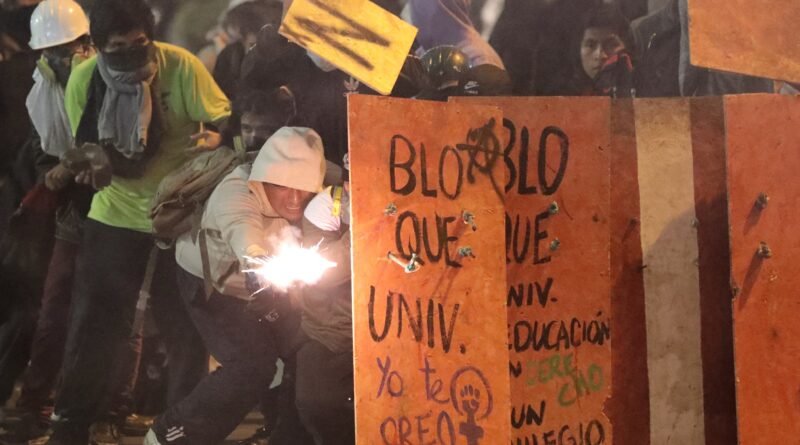 N
BLO
QUE
UNIV.
Yo te
CREO
BLO
QUE
UNIV.
EDUCACIÓN
DERE
CHO
UN